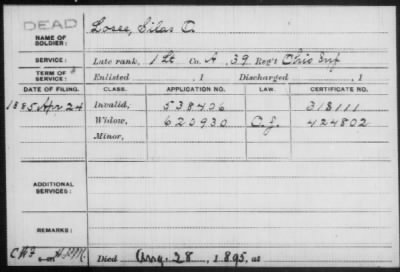 DEAD
NAME OF SOLDIER: Losee, Silas O.
SERVICE: Late rank, 1 Lt Co. A, 39 Reg't Ohio Inf
TERM OF SERVICE: Enlisted , 1 Discharged , 1
DATE OF FILING. CLASS. APPLICATION NO. LAW. CERTIFICATE NO.
1885 Apr 24 Invalid, 538406 318111
Widow, 620930 O.L. 424802
Minor,
ADDITIONAL SERVICES:
REMARKS:
Died Aug. 28, 1895, at